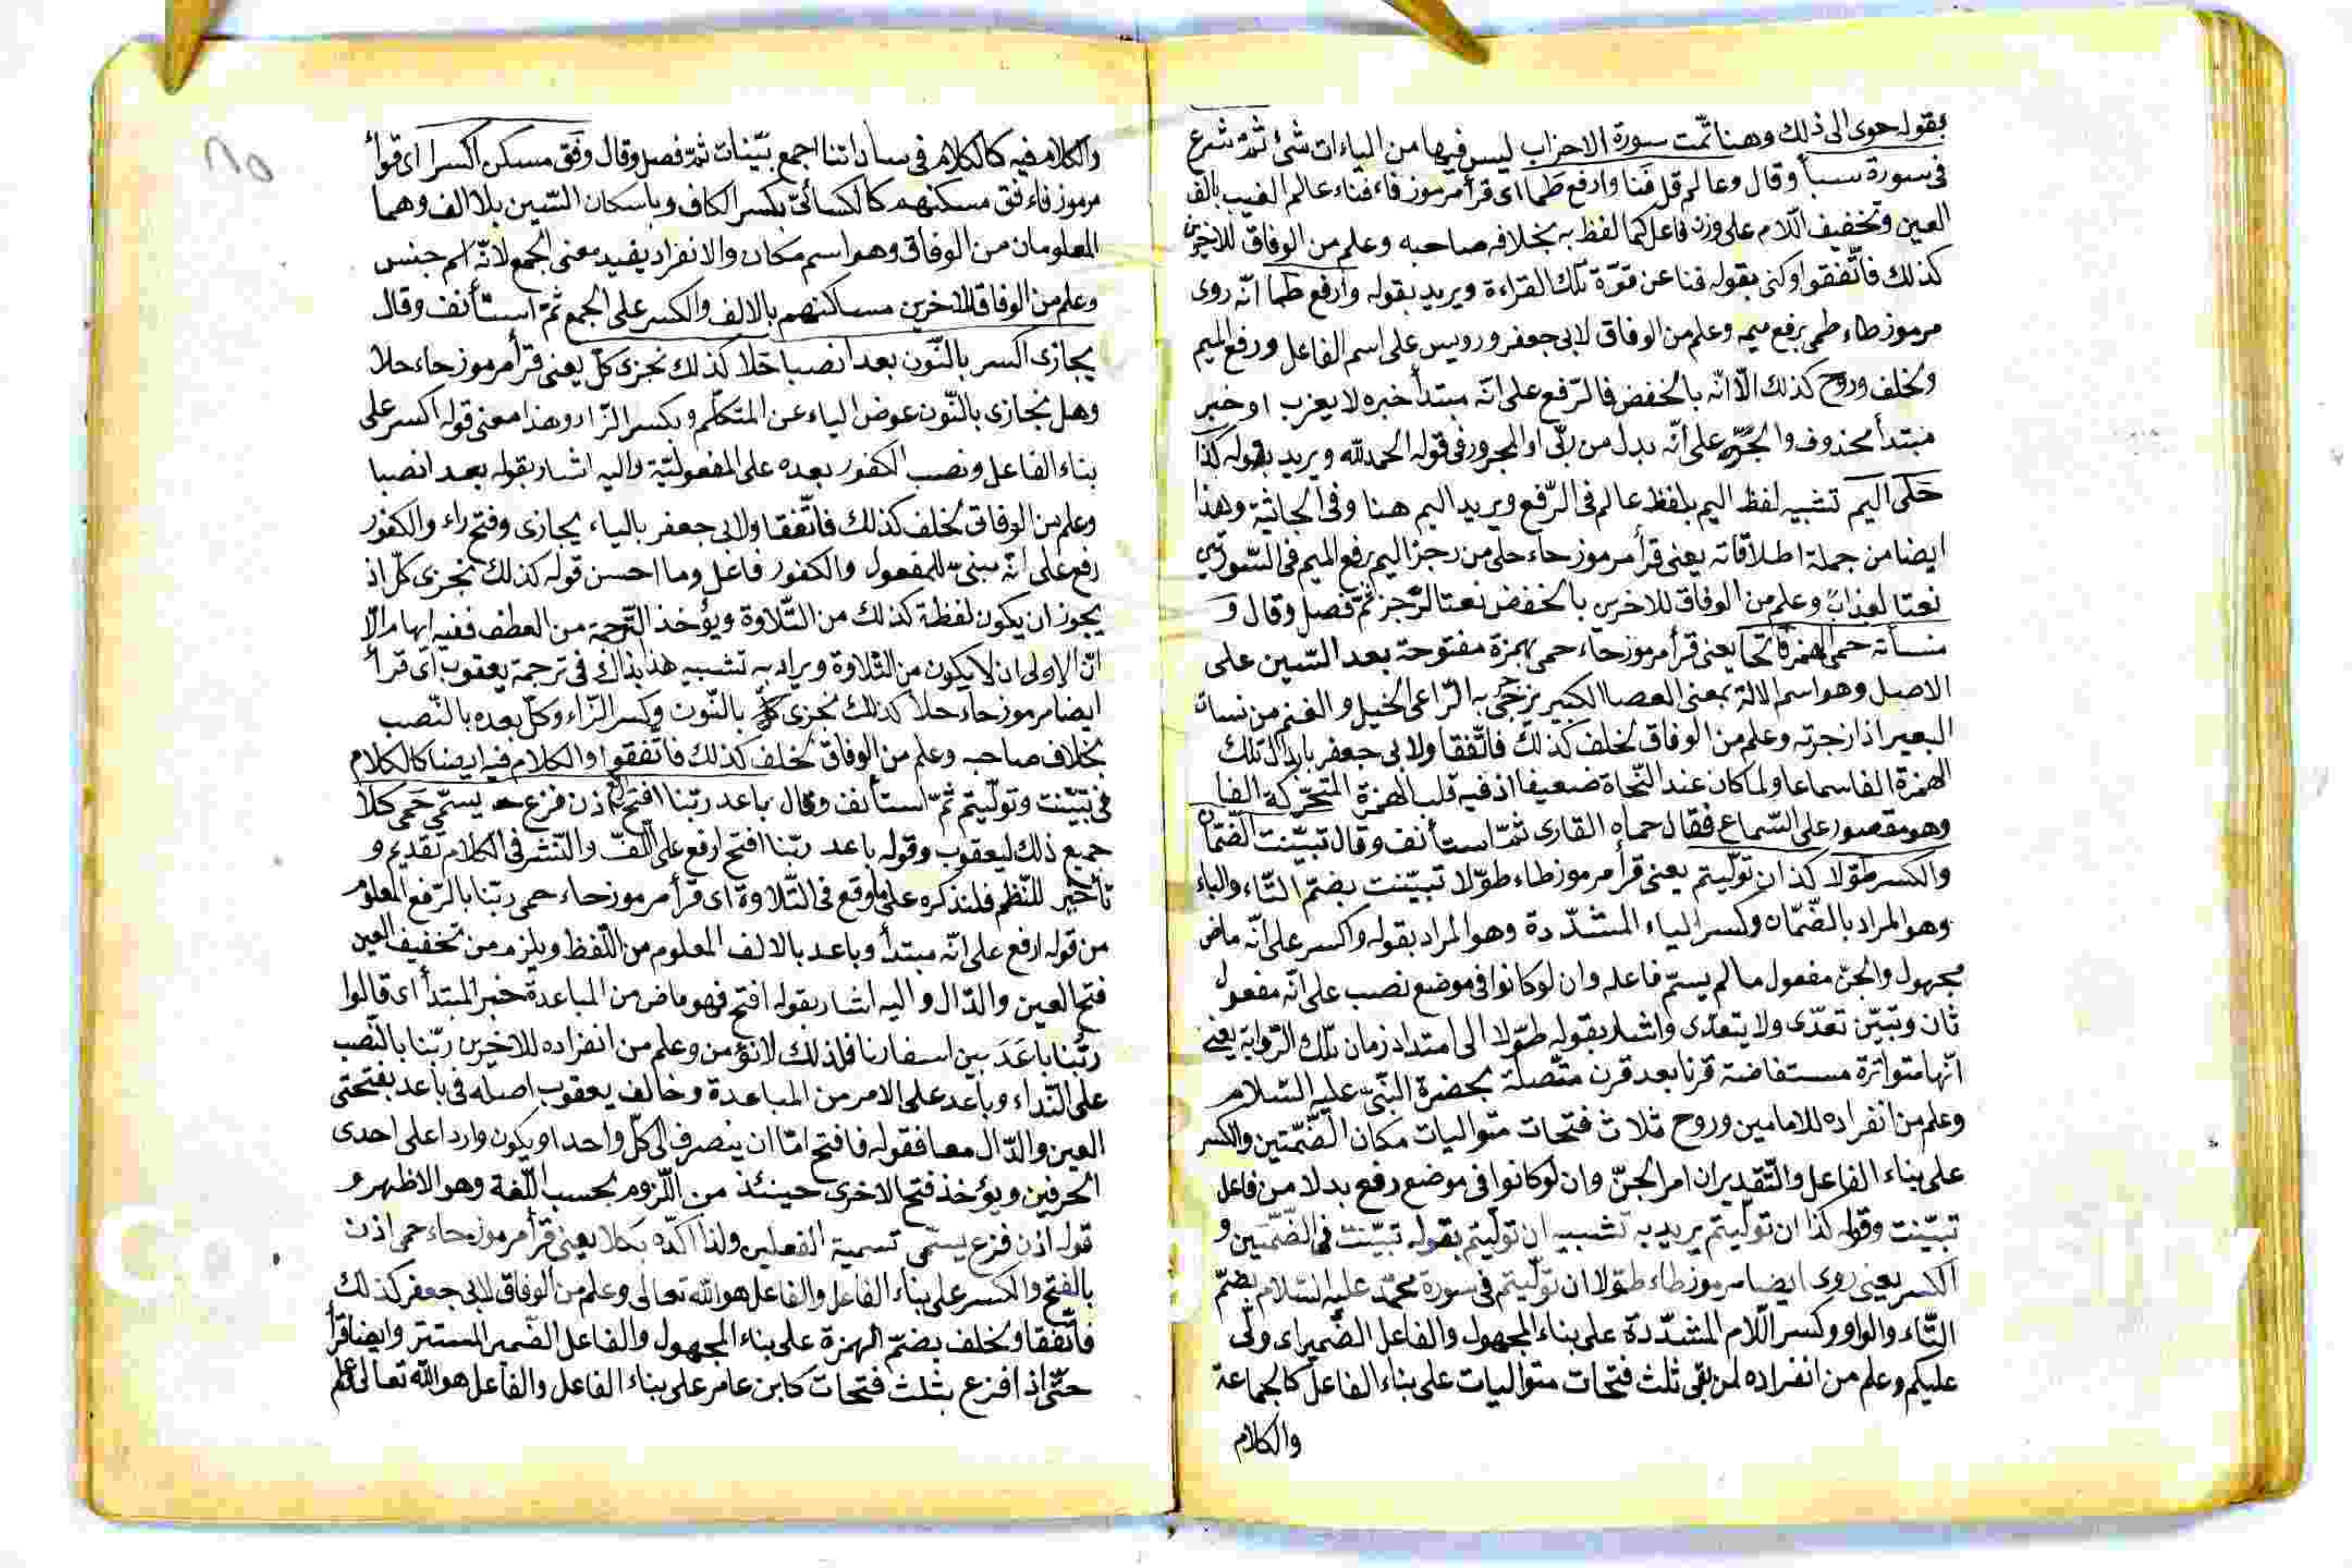 بقوله حوى الى ذلك وهنا تمت سورة الاحزاب ليس فيها من الياءات شئ ثمّ شرع
فى سورة سبأ وقال وعالم قل فَنا وارفع طَما اى قرأ مرموز فاء فناء عالم الغيب بالف
العين وتخفيف اللام على وزن فاعل كما لفظ به بخلاف صاحبه وعلم من الوفاق للاخرين
كذلك فاتّفقوا وكنى بقوله فنا عن قوّة تلك القراءة ويريد بقوله وارفع طما انّه روى
مرموز طاء طمى برفع ميمه وعلم من الوفاق لابى جعفر ورويس على اسم الفاعل ورفع الميم
ولخلف وروح كذلك الّا انّه بالخفض فالرّفع على انّه مبتدأ خبره لا يعزب او خبر
مبتدأ محذوف والجرّ على انّه بدل من ربّى او المجرور فى قوله الحمد لله ويريد بقوله كذا
حَلَى اليم تشبيه لفظ اليم بلفظ عالم فى الرّفع ويريد اليم هنا وفى الجاثية وهذا
ايضا من جملة اطلاقاته يعنى قرأ مرموز حاء حلى من رجز اليم برفع الميم فى السّورتين
نعتا لعذاب وعلم من الوفاق للاخرين بالخفض نعتا لرّجز ثمّ فصل وقال و
منسأته حمى الهمز فاتحا يعنى قرأ مرموز حاء حمى بهمزة مفتوحة بعد السّين على
الاصل وهو اسم الالة بمعنى العصا الكبير يزجى به الرّاعى الخيل والغنم من نسات
البعير اذا زجرته وعلم من الوفاق لخلف كذلك فاتّفقا ولابى جعفر بابدال تلك
الهمزة الفا سماعا ولما كان عند النّحاة ضعيفا اذ فيه قلب الهمزة المتحرّكة الفا
وهو مقصور على السّماع فقال حماه القارى ثمّ استأنف وقال تبيّنت الضّمّان
والكسر طوّلا كذا ان تولّيتم يعنى قرأ مرموز طاء طوّلا تبيّنت بضمّ التّاء والباء
وهو المراد بالضّمّان وكسر الياء المشدّدة وهو المراد بقوله والكسر على انّه ماض
مجهول والجنّ مفعول ما لم يسمّ فاعله وان لو كانوا فى موضع نصب على انّه مفعول
ثان وتبيّن تعدّى ولا يتعدّى واشار بقوله طوّلا الى امتداد زمان تلك الرّواية يعنى
انّها متواترة مستفاضة قرنا بعد قرن متّصلة بحضرة النّبىّ عليه السّلام
وعلم من انفراده للامامين وروح ثلاث فتحات متواليات مكان الضّمّتين والكسر
على بناء الفاعل والتّقدير ان امر الجنّ وان لو كانوا فى موضع رفع بدلا من فاعل
تبيّنت وقوله كذا ان تولّيتم يريد به تشبيه ان تولّيتم بقوله تبيّنت فى الضّمّتين و
الكسر يعنى روى ايضا مرموز طاء طوّلا ان تولّيتم فى سورة محمّد عليه السّلام بضمّ
التّاء والواو وكسر اللّام المشدّدة على بناء المجهول والفاعل الضّمير اى ولّى
عليكم وعلم من انفراده لمن بقى ثلث فتحات متواليات على بناء الفاعل كالجماعة
والكلام
والكلام فيه كالكلام فى ساداتنا اجمع بيّنات ثمّ فصل وقال وفق مسكن اكسرا اى قرأ
مرموز فاء فق مسكنهم كالكسائىّ بكسر الكاف وباسكان السّين بلا الف وهما
المعلومان من الوفاق وهو اسم مكان والانفراد يفيد معنى الجمع لانّه اسم جنس
وعلم من الوفاق للاخرين مساكنهم بالالف والكسر على الجمع ثمّ استأنف وقال
يجازى اكسر بالنّون بعد انصبا حلا كذلك نجزى كلّ يعنى قرأ مرموز حاء حلا
وهل نجازى بالنّون عوض الياء عن المتكلّم وبكسر الزّاء وهذا معنى قوله اكسر على
بناء الفاعل ونصب الكفور بعده على المفعوليّة واليه اشار بقوله بعد انصبا
وعلم من الوفاق لخلف كذلك فاتّفقا ولابى جعفر بالياء يجازى وفتح راء والكفور
رفع على انّه مبنىّ للمفعول والكفور فاعل وما احسن قوله كذلك نجزى كلّ اذ
يجوز ان يكون لفظة كذلك من التّلاوة ويؤخذ التّرجمة من العطف ففيه ايهام الّا
انّ الاولى ان لا يكون من التّلاوة ويراد به تشبيه هذا بذاك فى ترجمة يعقوب اى قرأ
ايضا مرموز حاء حلا كذلك نجزى كلّ بالنّون وكسر الزّاء وكلّ بعده بالنّصب
بخلاف صاحبه وعلم من الوفاق لخلف كذلك فاتّفقوا والكلام فيه ايضا كالكلام
فى تبيّنت وتولّيتم ثمّ استأنف وقال باعد ربّنا افتح ارفع اذن فزع يسمّى حَمى كلا
جميع ذلك ليعقوب وقوله باعد ربّنا افتح ارفع على اللّفّ والنّشر فى الكلام تقديم و
تأخير للنّظم فلنذكره على ما وقع فى التّلاوة اى قرأ مرموز حاء حمى ربّنا بالرّفع المعلوم
من قوله ارفع على انّه مبتدأ وباعد بالالف المعلوم من اللّفظ ويلزم من تخفيف العين
فتح العين والدّال واليه اشار بقوله افتح فهو ماض من المباعدة خبر المبتدأ اى قالوا
ربُّنا باعَدَ بين اسفارنا فلذلك لا نؤمن وعلم من انفراده للاخرين ربّنا بالنّصب
على النّداء وباعد على الامر من المباعدة وخالف يعقوب اصله فى باعد بفتحتى
العين والدّال معا فقوله فافتح امّا ان ينصرف الى كلّ واحد او يكون واردا على احدى
الحرفين ويؤخذ فتح الاخرى حينئذ من اللّزوم بحسب اللّغة وهو الاظهر و
قوله اذن فزع يسمّى تسمية الفعلين ولذا اكّده بكلا يعنى قرأ مرموز حاء حمى اذن
بالفتح والكسر على بناء الفاعل والفاعل هو الله تعالى وعلم من الوفاق لابى جعفر كذلك
فاتّفقا ولخلف بضمّ الهمزة على بناء المجهول والفاعل الضّمير المستتر وايضا قرأ
حتّى اذا فزع بثلث فتحات كابن عامر على بناء الفاعل والفاعل هو الله تعالى علم